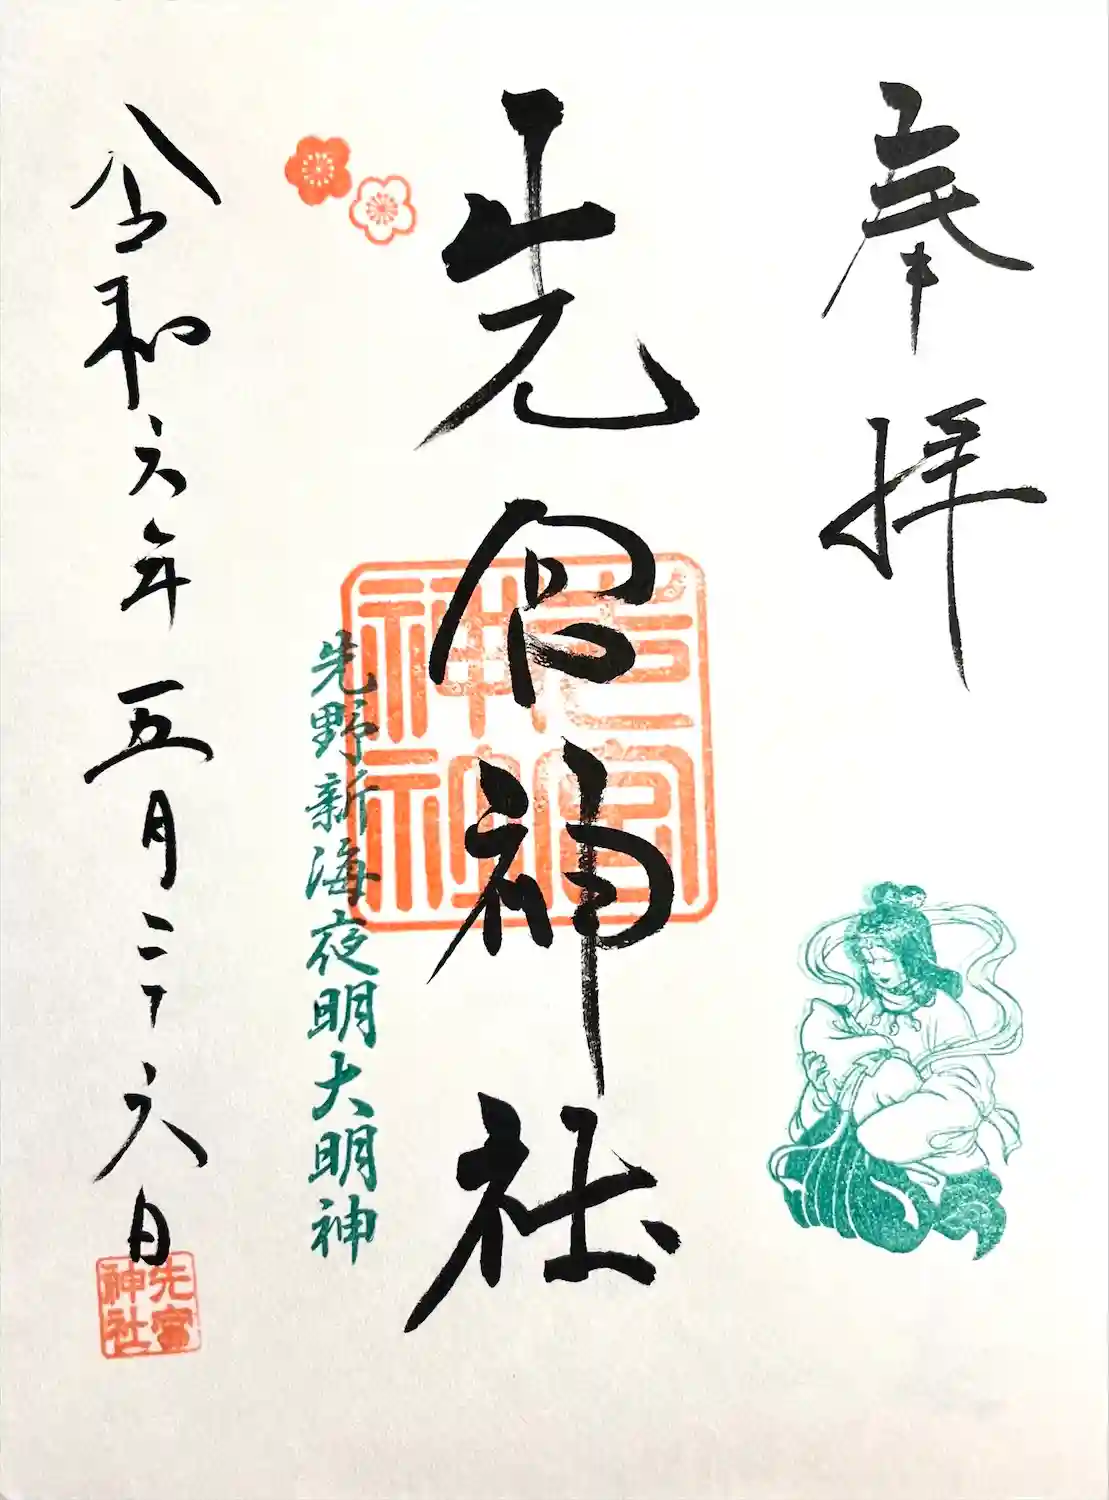 奉拝
先宮神社
先宮神社
先野新海夜明大明神
令和六年五月二十六日
先宮神社